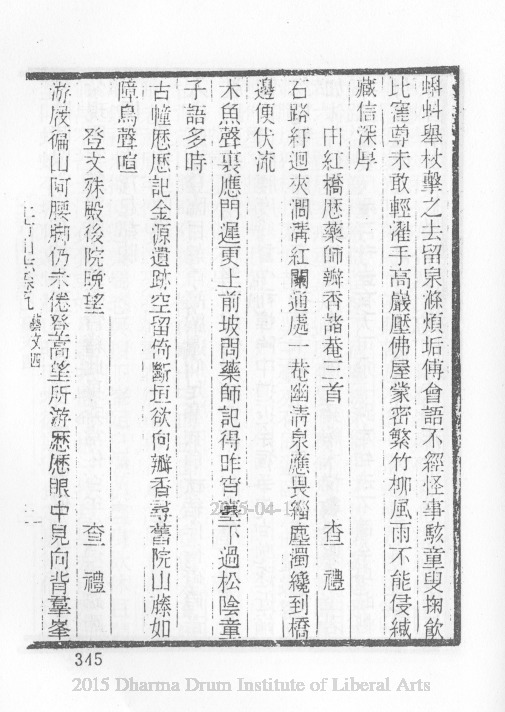 蝌蚪舉杖擊之去留泉滌煩垢傅會語不經怪事駭童叟掬飲
比窪尊未敢輕濯手高巖壓佛屋蒙密繁竹柳風雨不能侵緘
藏信深厚
由紅橋歷藥師瓣香諸菴三首 查禮
石路紆迴夾澗溝紅闌通處一菴幽清泉應畏緇塵濁纔到橋
邊便伏流
木魚聲裏應門遲更上前坡問藥師記得昨宵臺下過松陰童
子語多時
古幢歷歷記金源遺跡空留倚斷垣欲向瓣香尋舊院山藤如
障鳥聲喧
登文殊殿後院晚望 查禮
游屐徧山阿腰腳仍未倦登高望所游歷歷眼中見向背羣峯
卷九 藝文四
2015-04-1
345
2015 Dharma Drum Institute of Liberal Arts